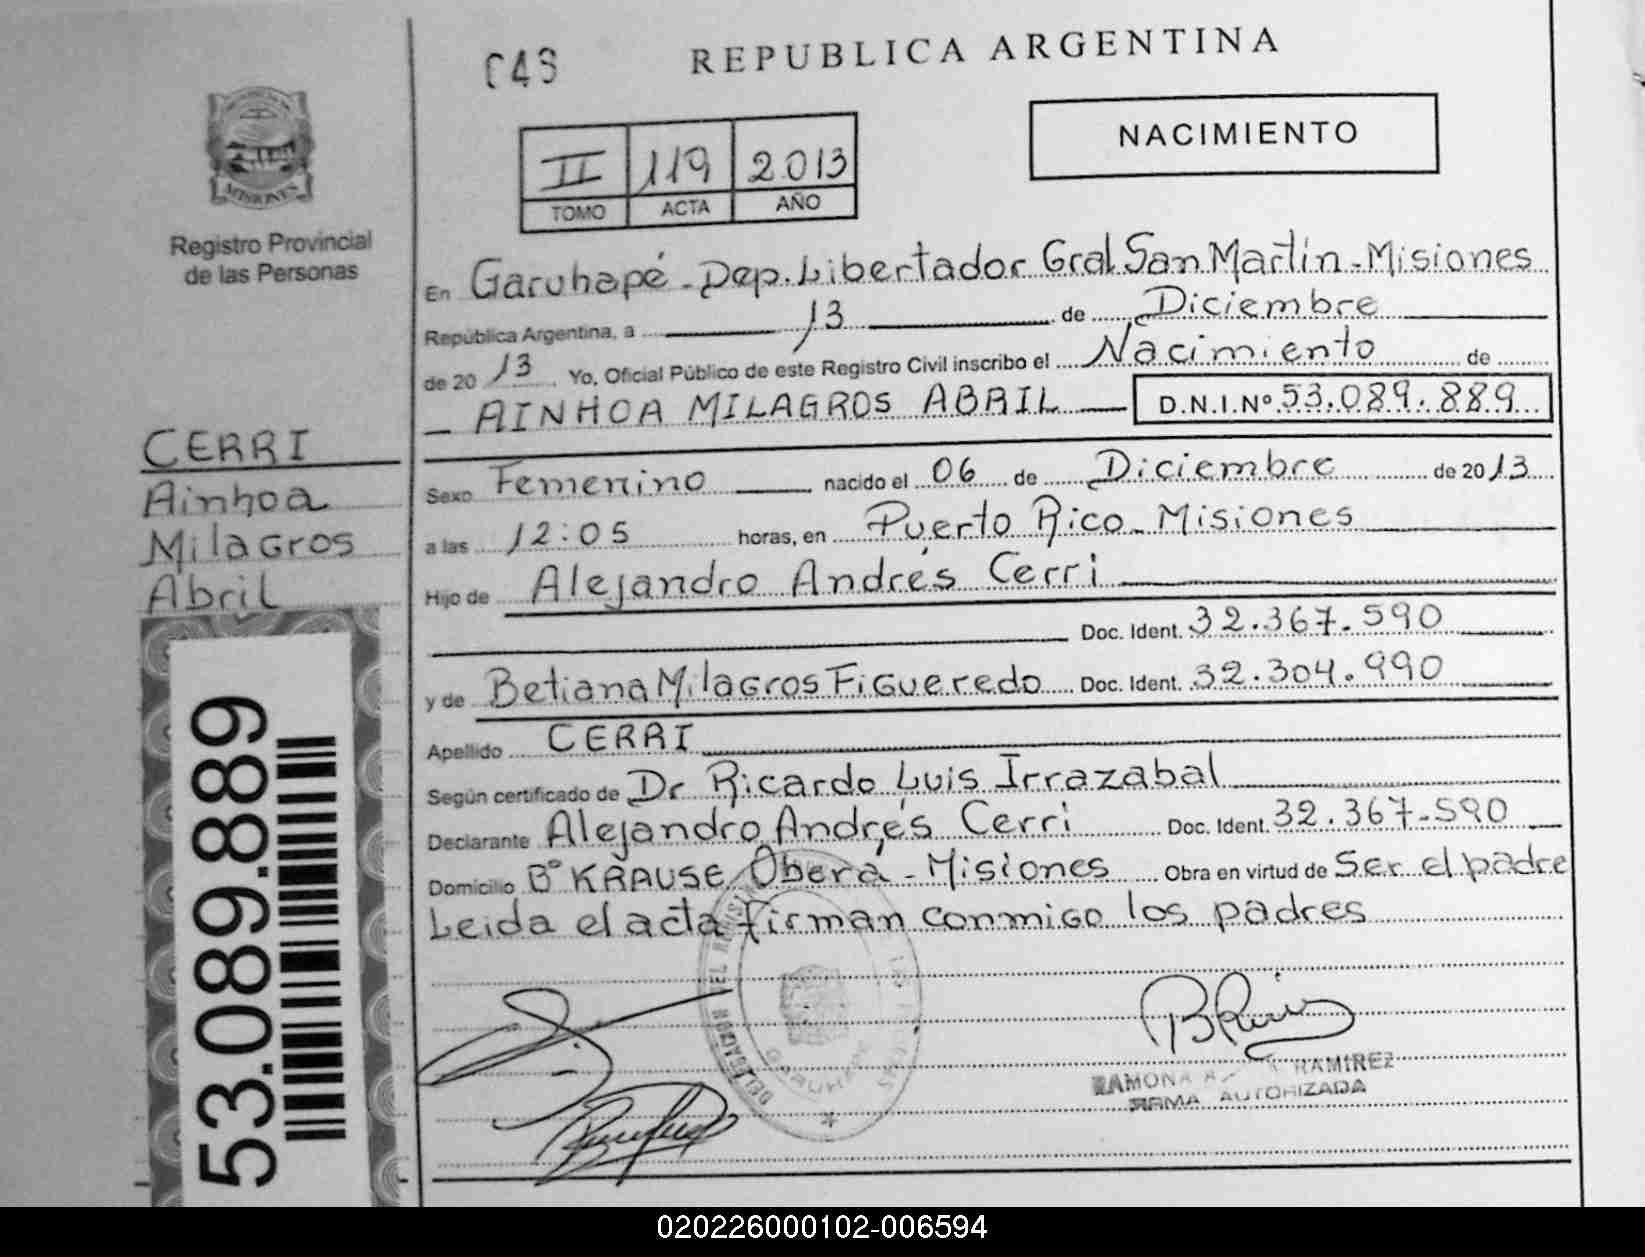 C43
REPUBLICA ARGENTINA
NACIMIENTO
II 119 2013
TOMO ACTA AÑO
MISIONES
Registro Provincial
de las Personas
En Garuhapé - Dep. Libertador Gral San Martín - Misiones
República Argentina, a 13 de Diciembre
de 2013 Yo, Oficial Público de este Registro Civil inscribo el Nacimiento de
AINHOA MILAGROS ABRIL D.N.I.Nº 53.089.889
CERRI
Ainhoa
Milagros
Abril
Sexo Femenino nacido el 06 de Diciembre de 2013
a las 12:05 horas, en Puerto Rico - Misiones
Hijo de Alejandro Andrés Cerri
Doc. Ident. 32.367.590
y de Betiana Milagros Figueredo Doc. Ident. 32.304.990
Apellido CERRI
Según certificado de Dr Ricardo Luis Irrazabal
Declarante Alejandro Andrés Cerri Doc. Ident. 32.367.590
Domicilio Bº KRAUSE Oberá - Misiones Obra en virtud de Ser el padre
Leida el acta firman conmigo los padres
53.089.889
DELEGACION DEL
GARUHAPE
RAMONA RAMIREZ
FIRMA AUTORIZADA
020226000102-006594